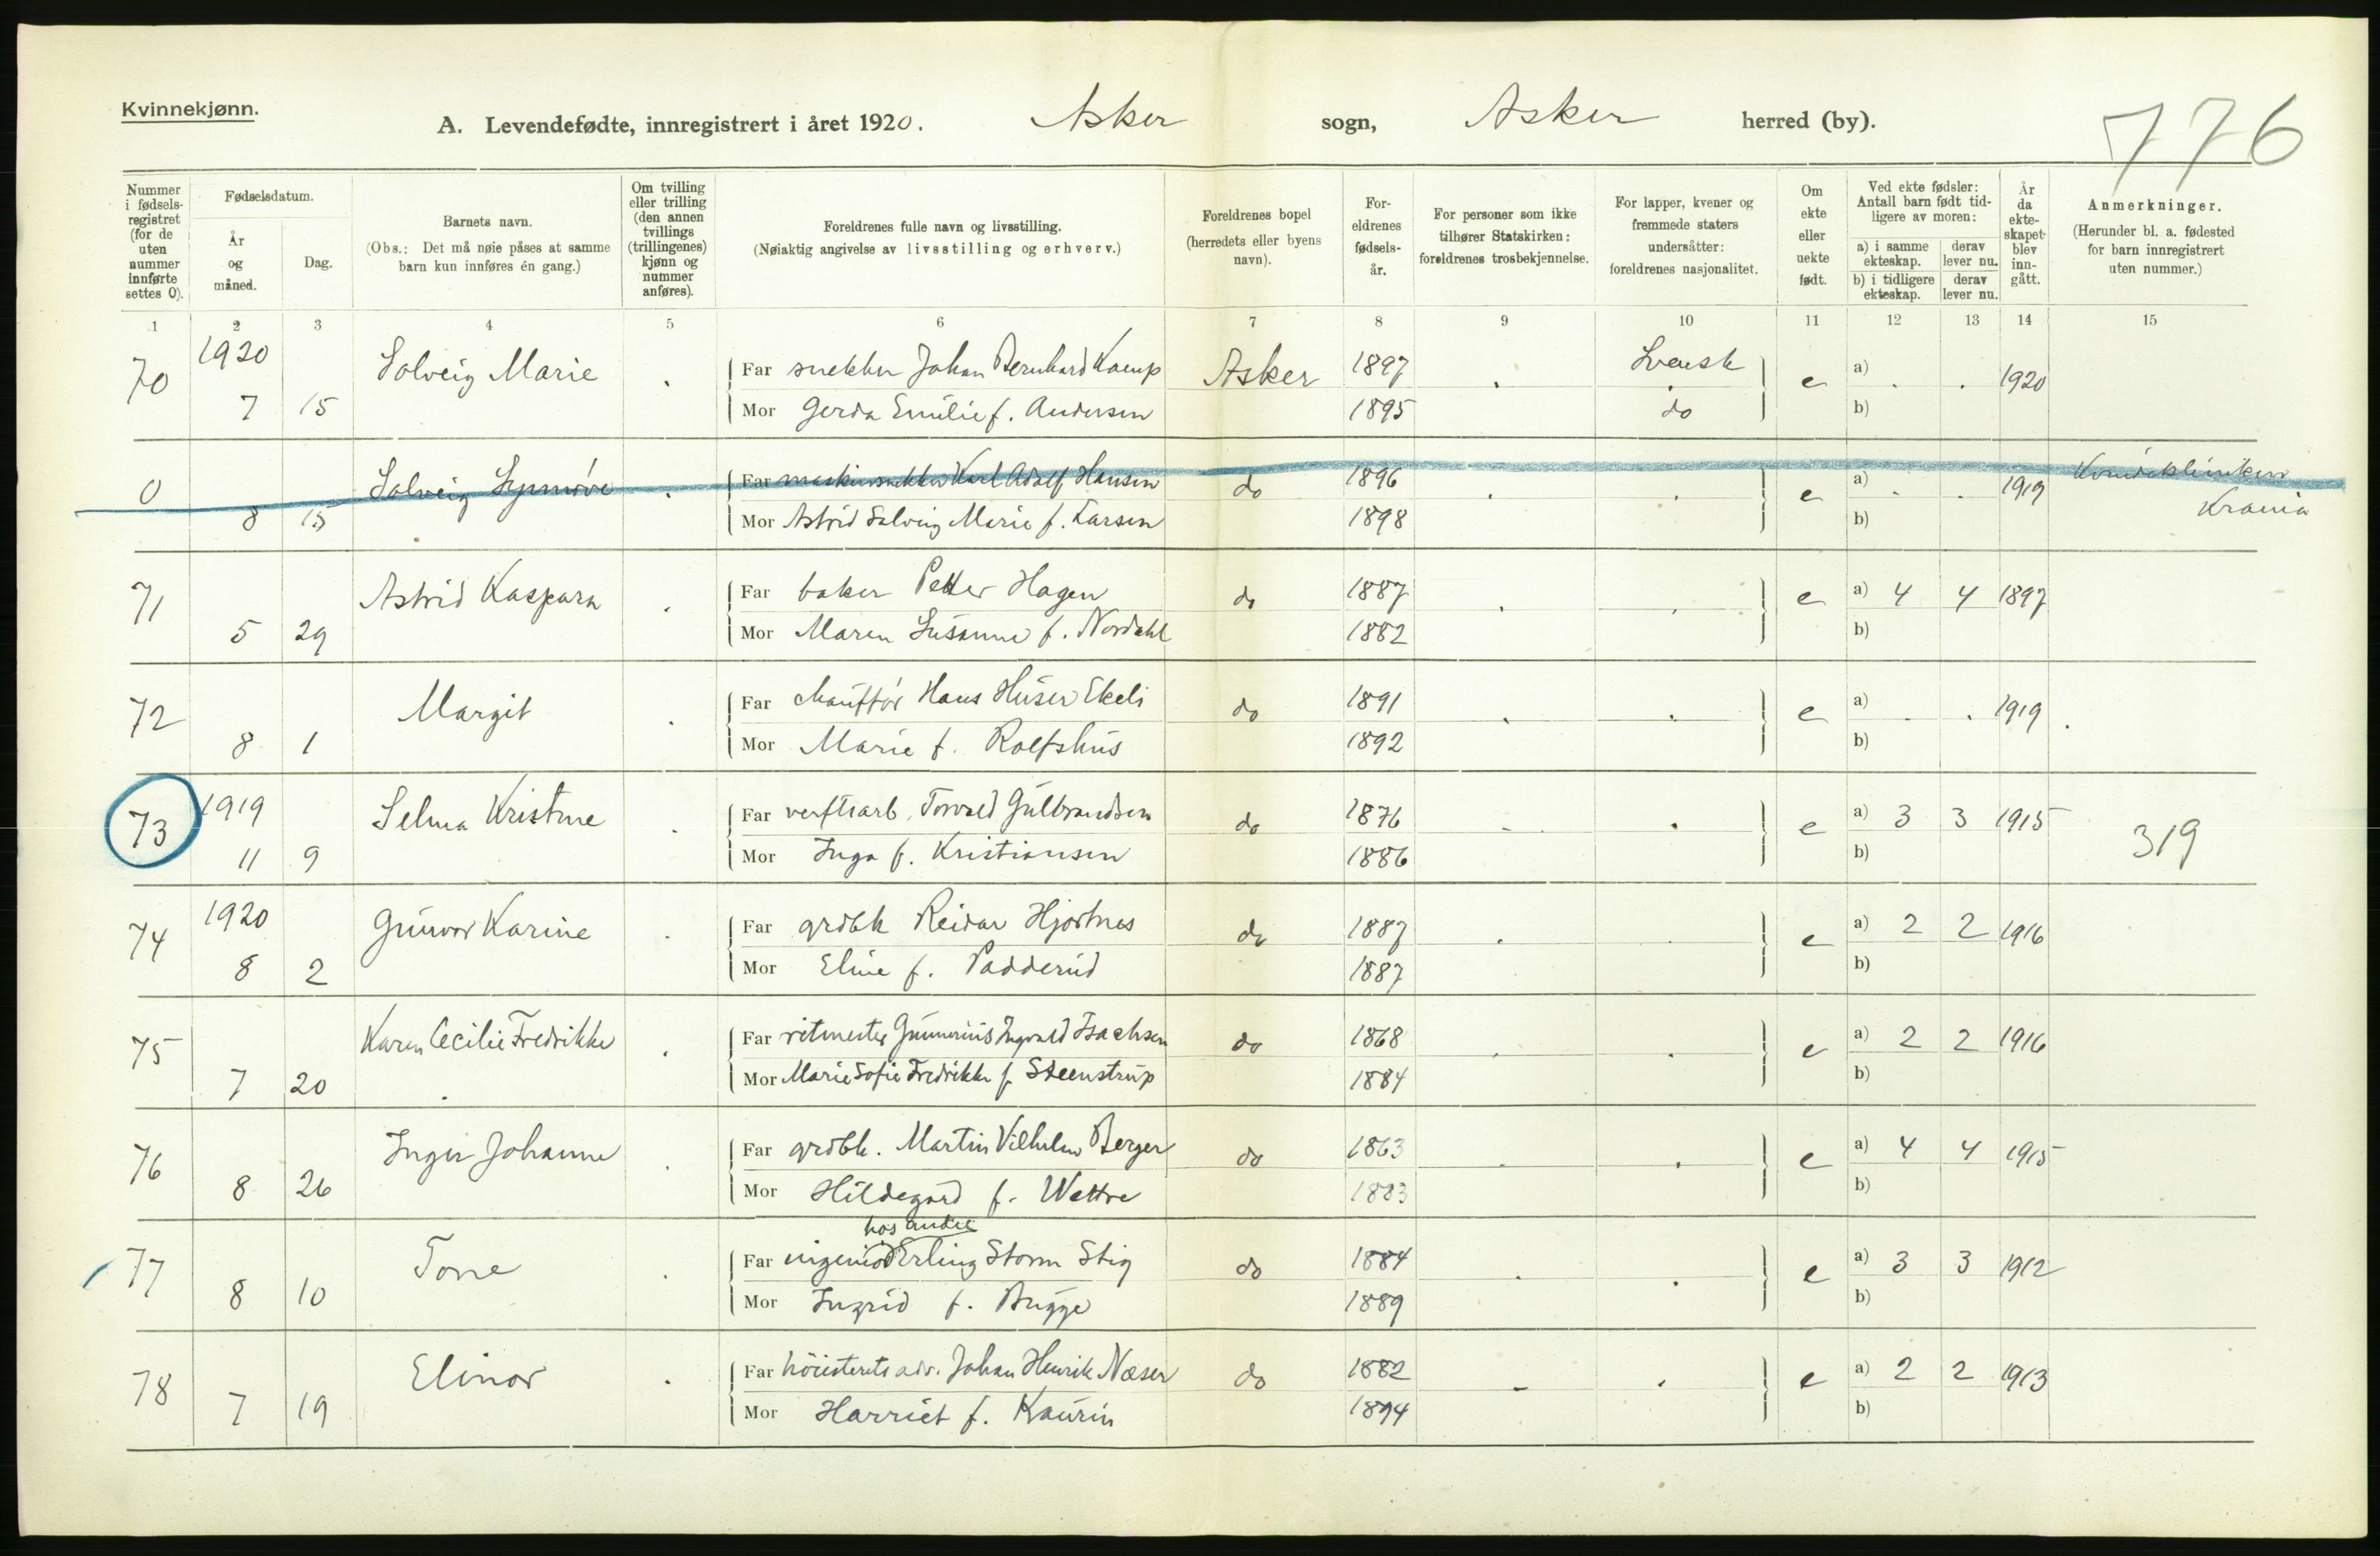 Kvinnekjønn.
A. Levendefødte, innregistrert i året 1920. Asker sogn, Asker herred (by).
776
Nummer i fødsels- registret (for de uten nummer innførte settes 0).
Fødselsdatum.
År og måned.
Dag.
Barnets navn.
(Obs.: Det må nøie påses at samme barn kun innføres én gang.)
Om tvilling eller trilling (den annen tvillings (trillingenes) kjønn og nummer anføres).
Foreldrenes fulle navn og livsstilling.
(Nøiaktig angivelse av livsstilling og erhverv.)
Foreldrenes bopel (herredets eller byens navn).
For- eldrenes fødsels- år.
For personer som ikke tilhører Statskirken: foreldrenes trosbekjennelse.
For lapper, kvener og fremmede staters undersåtter: foreldrenes nasjonalitet.
Om ekte eller uekte født.
Ved ekte fødsler: Antall barn født tid- ligere av moren:
a) i samme ekteskap. derav lever nu.
b) i tidligere ekteskap. derav lever nu.
År da ekte- skapet blev inn- gått.
Anmerkninger.
(Herunder bl. a. fødested for barn innregistrert uten nummer.)
1 2 3 4 5 6 7 8 9 10 11 12 13 14 15
70 1920 Solveig Marie . Far snekker Johan Bernhard Kamp Asker 1897 . Svensk e a) . . 1920
7 15 Mor Gerda Emilie f. Andersen 1895 do b)
0 Solveig Synnøve . Far maskinsnekker Karl Adolf Hansen do 1896 . . e a) . . 1919 Kvindeklinikken
8 15 Mor Astrid Solveig Marie f. Larsen 1898 b) Krania
71 Astrid Kaspara . Far baker Petter Hagen do 1887 . . e a) 4 4 1897
5 29 Mor Maren Susanne f. Nordahl 1882 b)
72 Margit . Far chauffør Hans Huser Ekeli do 1891 . . e a) . . 1919 .
8 1 Mor Marie f. Rolfshus 1892 b)
73 1919 Selma Kristine . Far verftsarb. Torvald Gulbrandsen do 1876 . . e a) 3 3 1915 319
11 9 Mor Inga f. Kristiansen 1886 b)
74 1920 Gunvor Karine . Far grdbk Reidar Hjortnes do 1887 . . e a) 2 2 1916
8 2 Mor Eline f. Padderud 1887 b)
75 Karen Cecilie Fredrikke . Far ritmester Gunnerius Ingvald Isachsen do 1868 . . e a) 2 2 1916
7 20 Mor Marie Sofie Fredrikke f. Steenstrup 1884 b)
76 Inger Johanne . Far grdbk. Martin Vilhelm Berger do 1863 . . e a) 4 4 1915
8 26 Mor Hildegard f. Wettre 1883 b)
hos andre
77 Tone . Far ingeniør Erling Storm Stig do 1884 . . e a) 3 3 1912
8 10 Mor Ingrid f. Bugge 1889 b)
78 Elinor . Far höiesterets adv. Johan Henrik Næser do 1882 . . e a) 2 2 1913
7 19 Mor Harriet f. Kaurin 1894 b)